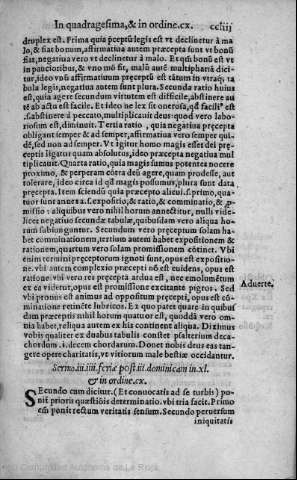 In quadragesima, & in ordine.cx. ccliij
druplex est. Prima quia pręceptū legis est vt declinetur à ma
lo, & fiat bonum, affirmatiua autem præcepta sunt vt bonū
fiat, negatiua vero vt declinetur à malo. Et q̃a bonū est vt
in paucioribus, & vno mō fit, malū autē multiphariā dici-
tur, ideo vnū affirmatiuum præceptū est tātum in vtraq; ta
bula legis, negatiua autem sunt plura. Secunda ratio huius
est, quia agere secundum virtutem est difficile, abstinere au
tē ab actu est facile. Et ideo ne lex sit onerosa, qd facili⁹ est
.s. abstinere à peccato, multiplicauit deus: quod vero labo-
riosum est, diminuit. Tertia ratio, quia negatiua pręcepta
obligant semper & ad semper, affirmatiua vero semper qui-
dē, sed non ad semper. Vt igitur homo magis esset dei præ-
ceptis ligatus quam absolutus, ideo præcepta negatiua mul
tiplicauit. Quarta ratio, quia magis sumus potentes nocere
proximo, & perperam cōtra deū agere, quam prodesse, aut
tolerare, ideo circa id qd magis possumus, plura sunt data
præcepta. Item sciendū quia præcepto alicui .s. primo, qua-
tuor sunt annexa .s. expositio, & ratio, & comminatio, & p̱-
missio: aliquibus vero nihil horum annectitur, nulli vide-
licet negatiuo secundæ tabulæ, quibusdam vero aliqua ho-
rum subiun guntur. Secundum vero præceptum solam ha-
bet comminationem, tertium autem habet expositionem &
rationem, quartum vero solam promissionem cōtinet. Vbi
enim termini pręceptorum ignoti sunt, opus est expositio-
ne. vbi autem complexio præcepti nō est euidens, opus est
ratione. vbi vero res præcepta ardua est, nec emolumētum
ex ea videtur, opus est promissione excitante pigros. Sed
vbi pronus est animus ad oppositum præcepti, opus est cō-
minatione retinēte lubricos. Ex quo patet quare in quibus
dam præceptis nihil horum quatuor est, quoddā vero om-
nia habet, reliqua autem ex his continent aliqua. Diximus
vobis qualiter ex duabus tabulis constet psalterium deca-
chordum .i. decem chordarum. Donet nobis deus eas tan-
gere opere charitatis, vt vitiorum male bestiæ occidantur.
Aduerte.
Sermo.iii.iiii.feriæ post.iii.dominicam in.xl.
& in ordine.cx.
Secundo cum dicitur. (Et conuocatis ad se turbis) po-
nit prioris quæstiōis determinatio. vbi tria facit. Primo
em̄ ponit rectum veritatis sensum. Secundo peruersum
iniquitatis